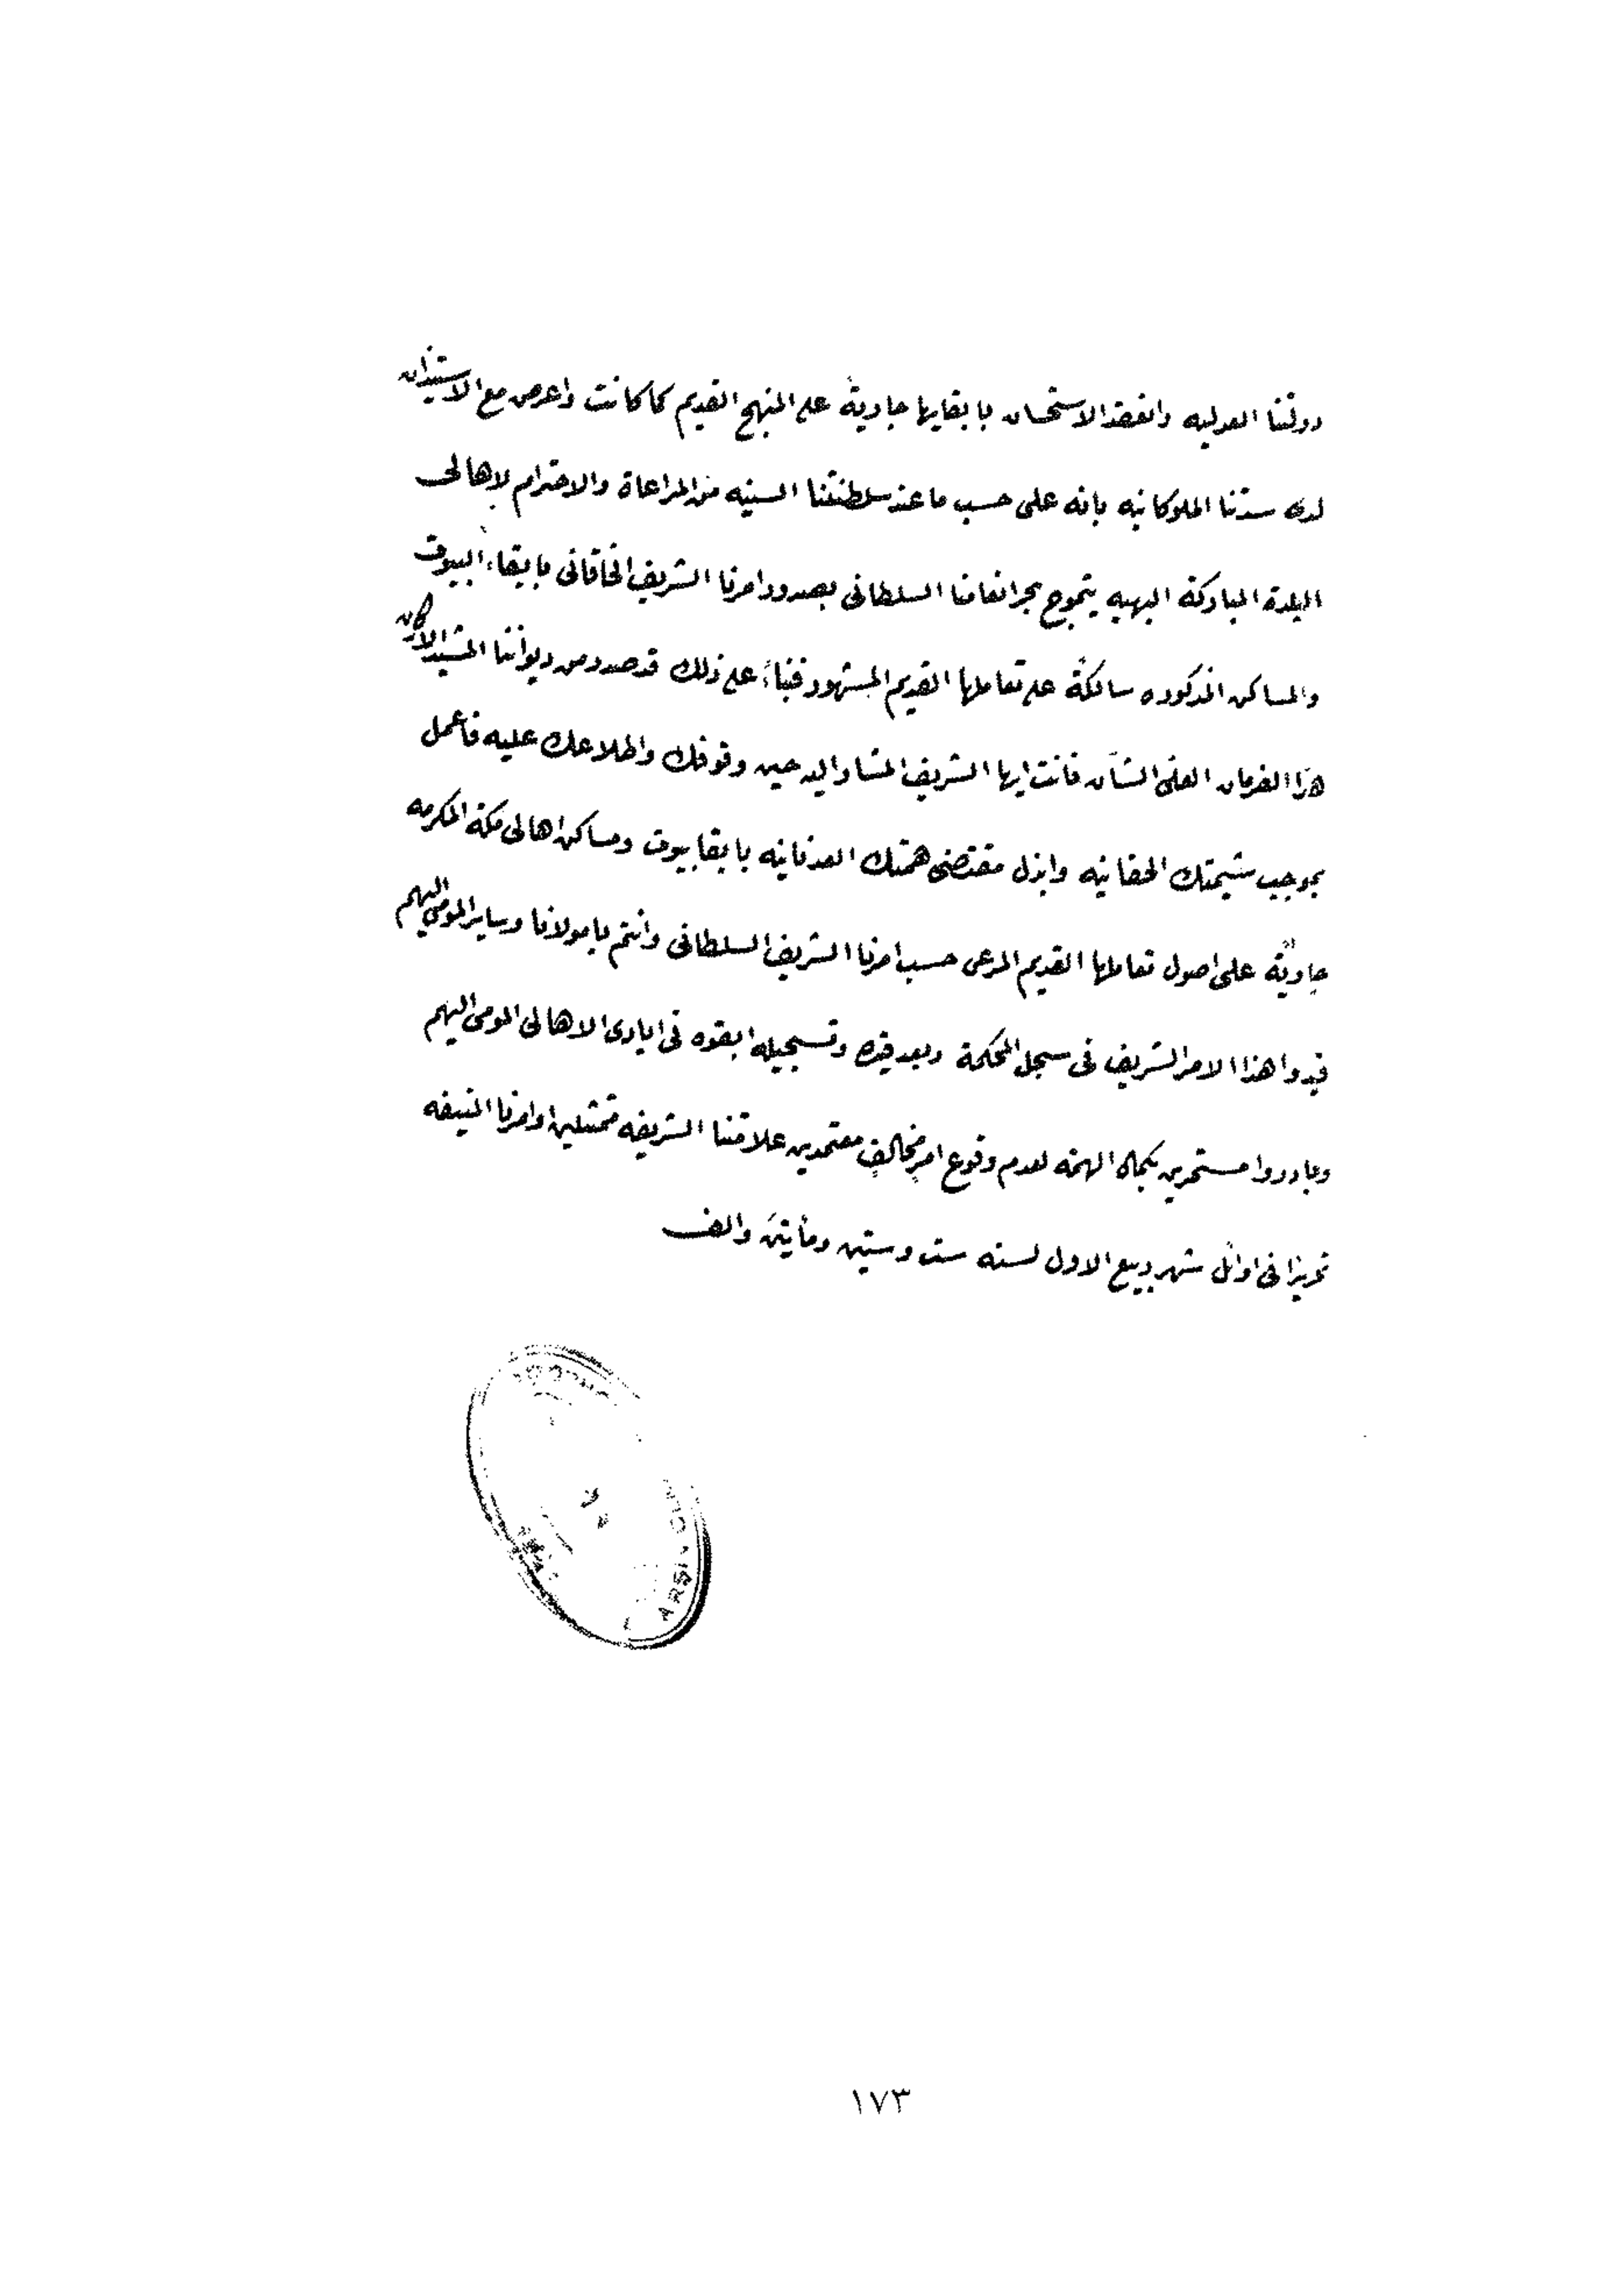 دولتنا العدليه وانعقد الاستحسان بابقايها جارية على المنهج القديم كما كانت واعرض مع الاستيذان
لدى سدتنا الملوكانيه بانه على حسب ما عند سلطنتنا السنيه من المراعاة والاحترام لاهالى
البلدة المباركة البهيه يتموج بحر انعامنا السلطانى بصدور امرنا الشريف الخاقانى بابقاء البيوت
والمساكن المذكوره سالكة على تعاملها القديم المشهور فبناءً على ذلك قد صدر من ديواننا المشيد الاركان
هذا الفرمان العلى الشان فانت ايها الشريف المشار اليه حين وقوفك واطلاعك عليه فاعمل
بموجب شيمتك الحقانيه وابذل مقتضى همتك العدنانيه بابقا بيوت ومساكن اهالى مكة المكرمه
جارية على اصول تعاملها القديم المرعى حسب امرنا الشريف السلطانى وانتم يا مولانا وساير المومى اليهم
قيدوا هذا الامر الشريف فى سجل المحكمة وبعد قيده وتسجيله ابقوه فى ايادى الاهالى المومى اليهم
وبادروا مستمرين بكمال الهمه لعدم وقوع امر مخالف معتمدين علامتنا الشريفه ممتثلين اوامرنا المنيفه
تحريرا فى اوائل شهر ربيع الاول لسنه ست وستين ومأيتين والف
ARŞİV
١٧٣